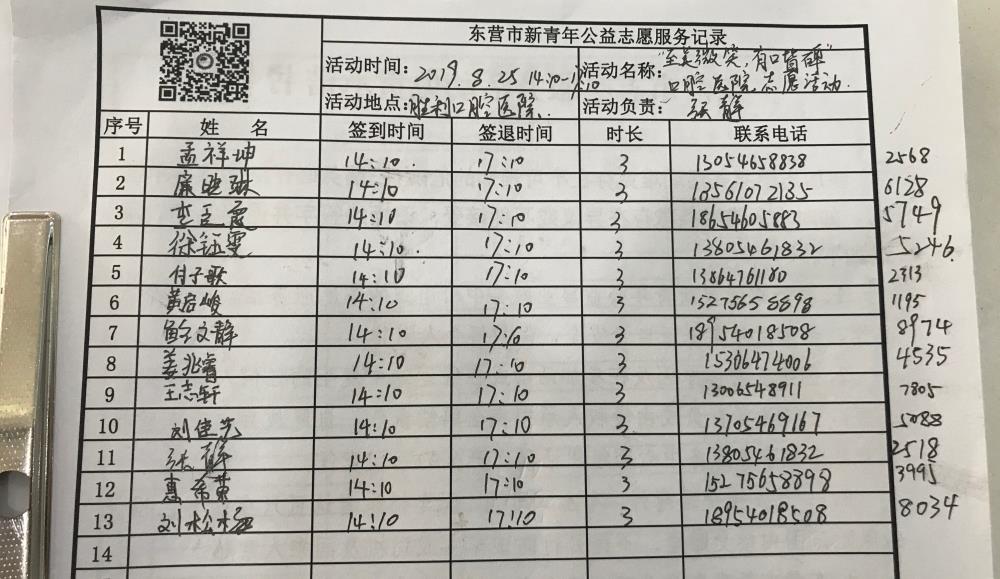 东营市新青年公益志愿服务记录
活动时间: 2019.8.25 14:10-17:10 活动名称: "至美微笑,有口皆碑"
口腔医院志愿活动
活动地点: 胜利口腔医院 活动负责: 张静
序号 姓 名 签到时间 签退时间 时长 联系电话
1 孟祥坤 14:10 17:10 3 13054658838 2568
2 廉晓琳 14:10 17:10 3 13561072135 6128
3 14:10 17:10 3 18654605883 5749
4 徐钰雯 14:10 17:10 3 13805461832 5246
5 付子歌 14:10 17:10 3 13864761180 2313
6 黄启峻 14:10 17:10 3 15275658898 1195
7 鲍文静 14:10 17:10 3 18954018508 8974
8 姜兆睿 14:10 17:10 3 15306474006 4535
9 王志轩 14:10 17:10 3 13006548911 7805
10 刘佳先 14:10 17:10 3 13705469167 5088
11 张静 14:10 17:10 3 13805461832 2518
12 惠希黄 14:10 17:10 3 15275658898 3995
13 刘松杨 14:10 17:10 3 18954018508 8034
14